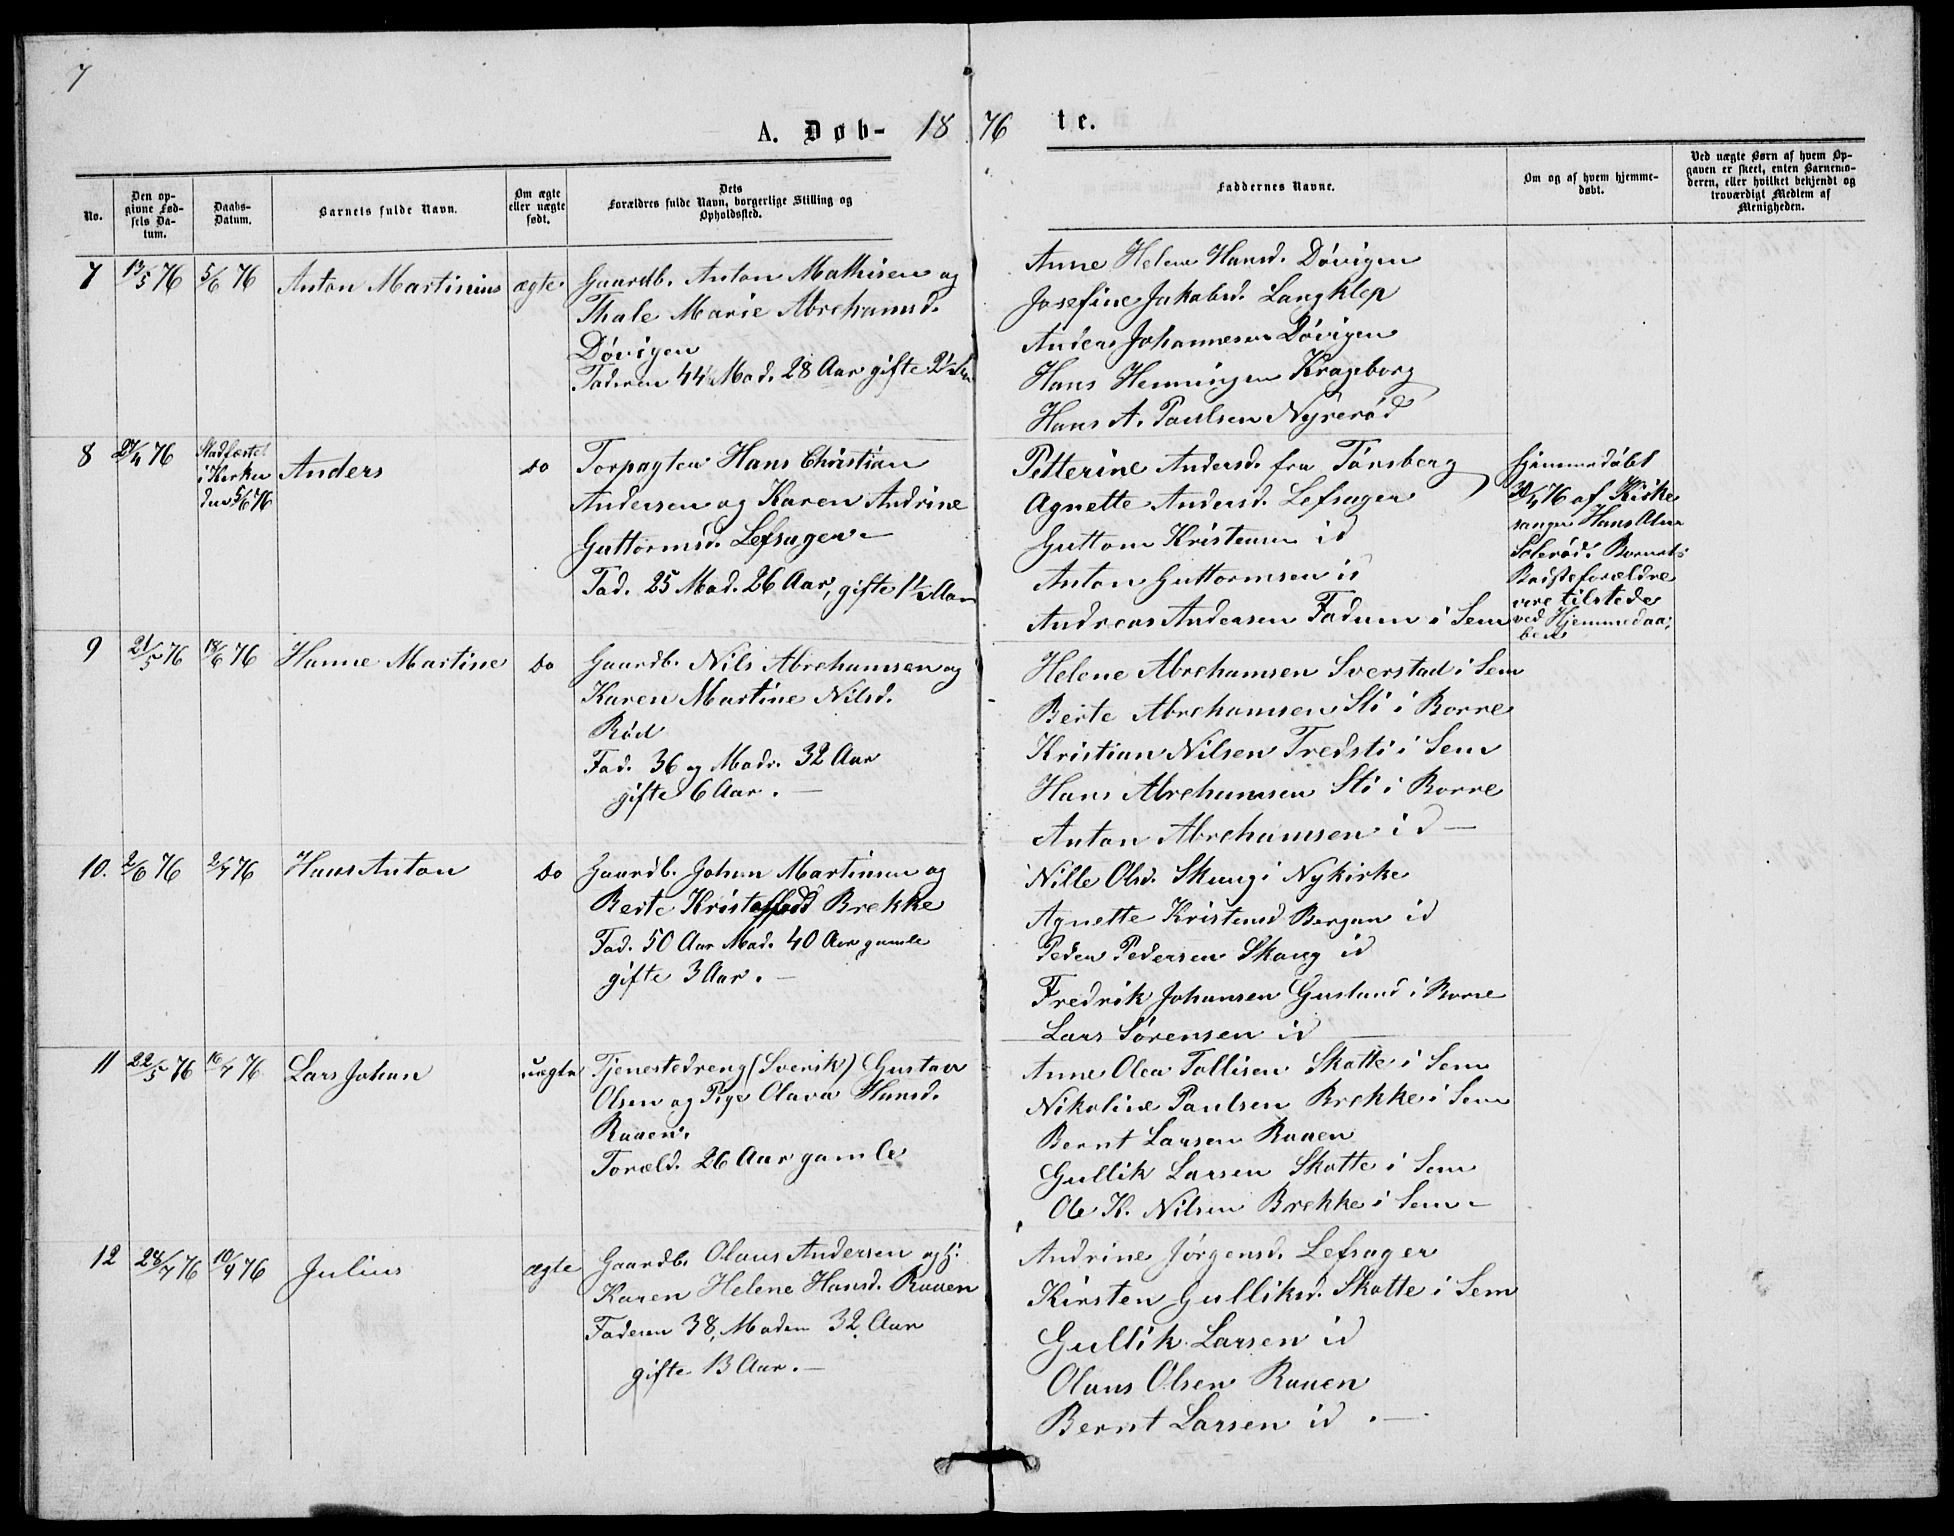 7
A. Døb- 18 76 te.
No.
Den op-
givne Fød-
sels Da-
tum.
Daabs-
Datum.
Barnets fulde Navn.
Om ægte
eller uægte
født.
Dets
Forældres fulde Navn, borgerlige Stilling og
Opholdssted.
Faddernes Navne.
Om og af hvem hjemme-
døbt.
Ved uægte Børn af hvem Op-
gaven er skeet, enten Barnemo-
deren, eller hvilket bekjendt og
troværdigt Medlem af
Menigheden.
7 13/5 76 5/6 76 Anton Martinius ægte
Gaardb. Anton Mathisen og
Thale Marie Abrehamsd.
Døvigen
Faderen 44 Mod. 28 Aar gifte 2
Anne Helene Hansd. Døvigen
Josefine Jakobsd. Langklep
Anders Johannesen Døvigen
Hans Henningsen Krageborg
Hans A. Paulsen Nyrerød
8 27/4 76
Stadfæstet
i Kirken
den 5/6 76
Anders do
Forpagter Hans Christian
Andersen og Karen Andrine
Guttormsd. Lefsager
Fad. 25 Mod. 26 Aar, gifte 1/2 Aar
Petterine Andersd. fra Tønsberg
Agnette Andersd. Lefsager
Guttorm Kristensen id
Anton Guttormsen id
Andreas Andersen Fadum i Sem
Hjemmedøbt
30/4 76 af Kirke
sanger Hans
Solerød. Barnets
Bedsteforældre
vare tilstede
ved Hjemmedaa-
ben
9 21/5 76 18/6 76 Hanne Martine do
Gaardb. Nils Abrehamsen og
Karen Martine Nilsd.
Rød
Fad. 36 og Modr. 32 Aar
gifte 6 Aar. —
Helene Abrehamsen Sverstad i Sem
Berte Abrehamsen Sti i Borre
Kristian Nilsen Tredsti i Sem
Hans Abrehamsen Sti i Borre
Anton Abrehamsen id —
10. 2/6 76 2/7 76 Hans Anton do
Gaardb. Johan Martinsen og
Berte Kristoffersd Brekke
Fad. 50 Aar Mod. 40 Aar gamle
gifte 3 Aar. —
Nille Olsd. Skaug i Nykirke
Agnette Kristensd Bergan id
Peder Pedersen Skaug id
Fredrik Johansen Guslund i Borre
Lars Sørensen id
11 22/5 76 16/7 76 Lars Johan uægte
Tjenestedreng (Svensk) Gustav
Olsen og Pige Olava Hansd.
Rauen.
Foræld. 26 Aar gamle
Anne Olea Tollisen Skotte i Sem
Nikoline Paulsen Brekke i Sem
Bernt Larsen Rauen
Gullik Larsen Skotte i Sem
Ole K. Nilsen Brekke i Sem
12 28/7 76 10/9 76 Julius ægte
Gaardb. Olaus Andersen og H.
Karen Helene Hansd. Rauen
Faderen 38, Moderen 32 Aar
gifte 13 Aar. —
Andrine Jørgensd. Lefsager
Kirsten Gulliksd. Skotte i Sem
Gullik Larsen id
Olaus Olsen Rauen
Bernt Larsen id. —